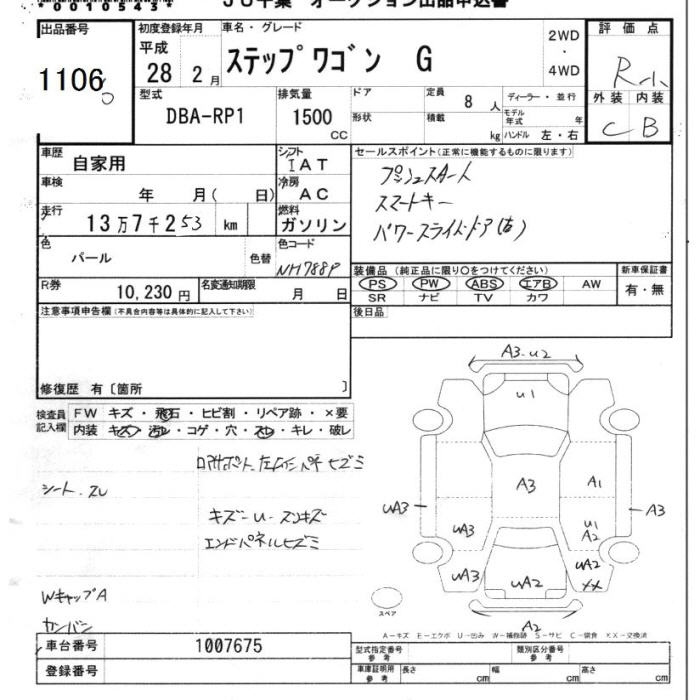 00105454
JU千葉 オークション出品申込書
出品番号 初度登録年月 車名・グレード 評価点
1106 平成 28 2月 ステップワゴン G 2WD ・ 4WD R-1
型式 DBA-RP1 排気量 1500 CC ドア 定員 8 人 ディーラー・並行 外装 内装
形状 積載 kg モデル年式 年 ハンドル 左・右 C B
車歴 自家用 シフト IAT セールスポイント(正常に機能するものに限ります)
車検 年 月( 日) 冷房 AC プッシュスタート
スマートキー
走行 13万7千253 km 燃料 ガソリン パワースライドドア(右)
色 パール 色替 色コード NH788P
装備品(純正品に限り○をつけてください) 新車保証書
PS PW ABS エアB AW 有・無
SR ナビ TV カワ
R券 10,230円 名変通知期限 月 日 後日品
注意事項申告欄(不具合内容等は具体的に記入して下さい)
修復歴 有〔箇所 〕
検査員記入欄 FW キズ・飛石・ヒビ割・リペア跡・×要
内装 キズ・汚レ・コゲ・穴・スレ・キレ・破レ
シート、スレ
キズーU-スンキズ
エンドパネルヒズミ
WキャップA
カンバン
A3.U2
U1
A3
A1
UA3
A3
UA3
U1
A2
UA3
UA2
UA2
XX
A2
スペア
A-キズ E-エクボ U-凹み W-補修跡 S-サビ C-腐食 XX-交換済
車台番号 1007675 型式指定番号 参考 類別区分番号 参考
登録番号 車庫証明用 参考 長さ cm 幅 cm 高さ cm